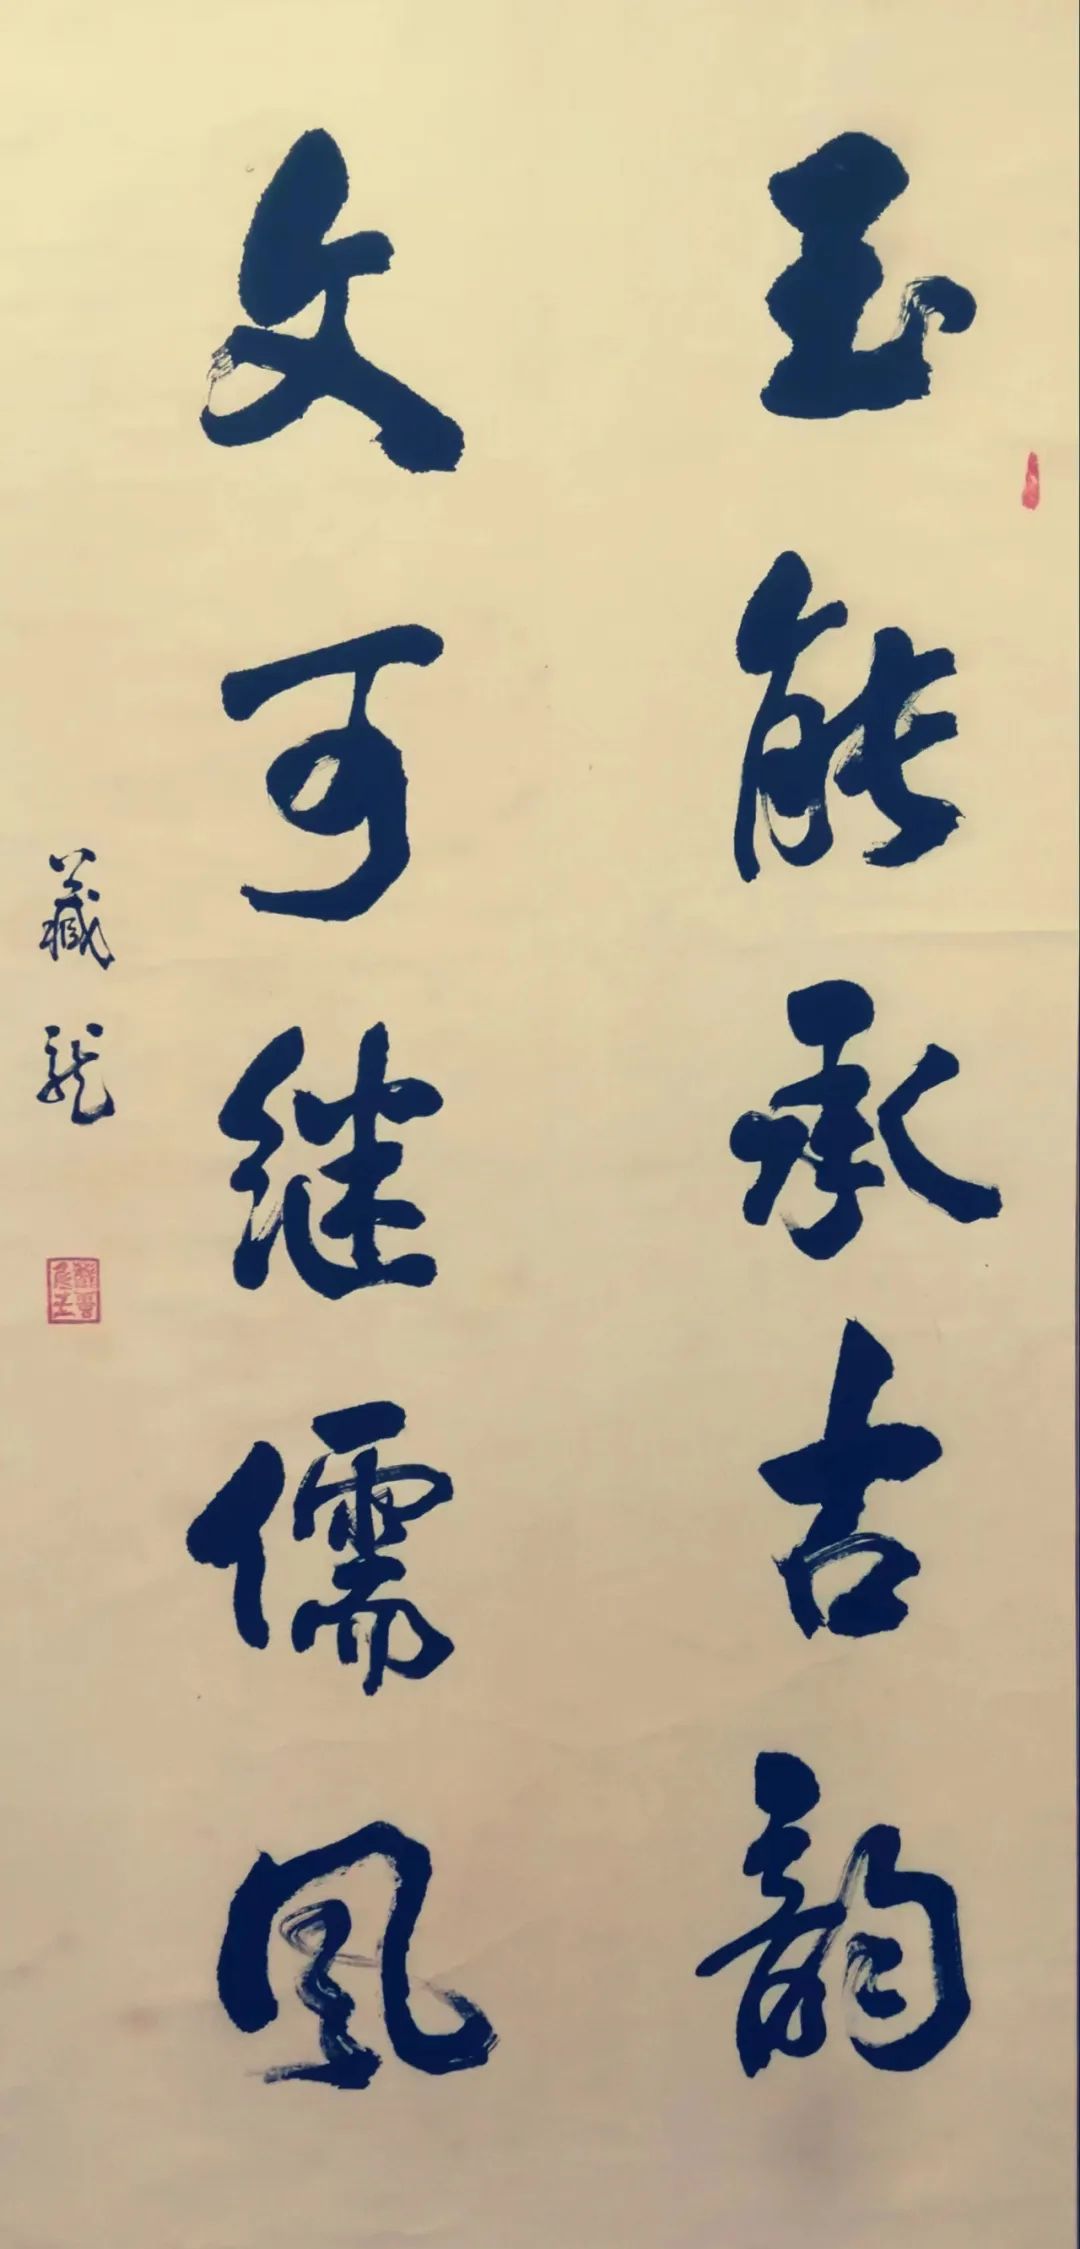 玉能承古韵
文可继儒风
藏龙